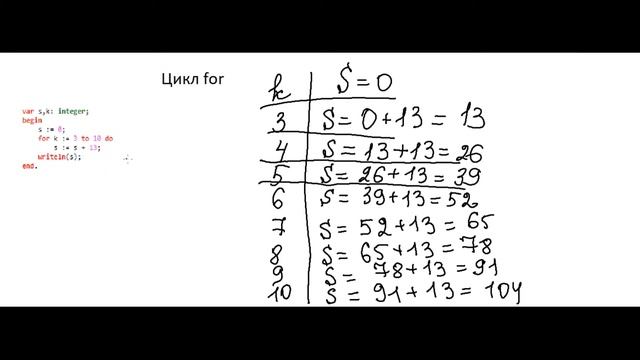 Цикл for
var s,k: integer;
begin
s := 0;
for k := 3 to 10 do
s := s + 13;
writeln(s);
end.
k S=0
3 S=0+13=13
4 S=13+13=26
5 S=26+13=39
6 S=39+13=52
7 S=52+13=65
8 S=65+13=78
9 S=78+13=91
10 S=91+13=104